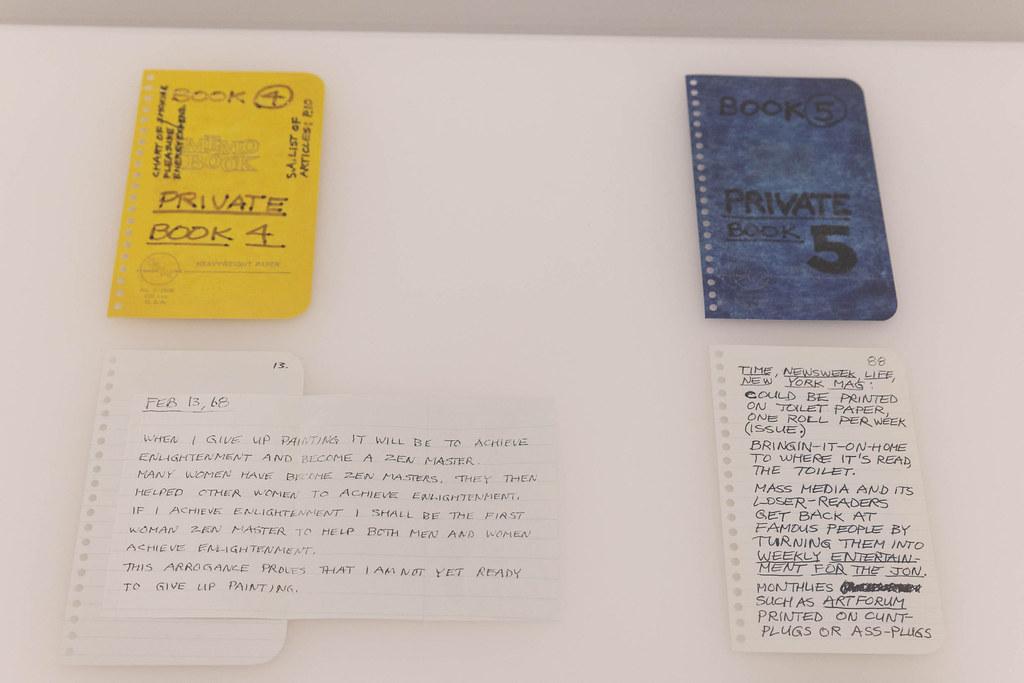 BOOK 4
CHART OF SMOKING
PLEASURE/
MEMO
BOOK
S.A. LIST OF
ARTICLES: P.10
PRIVATE
BOOK 4
HEAVYWEIGHT PAPER
U.S.A.
BOOK 5
PRIVATE
BOOK 5
13.
FEB 13, 68
WHEN I GIVE UP PAINTING IT WILL BE TO ACHIEVE
ENLIGHTENMENT AND BECOME A ZEN MASTER.
MANY WOMEN HAVE BECOME ZEN MASTERS. THEY THEN
HELPED OTHER WOMEN TO ACHIEVE ENLIGHTENMENT.
IF I ACHIEVE ENLIGHTENMENT I SHALL BE THE FIRST
WOMAN ZEN MASTER TO HELP BOTH MEN AND WOMEN
ACHIEVE ENLIGHTENMENT.
THIS ARROGANCE PROVES THAT I AM NOT YET READY
TO GIVE UP PAINTING.
88
TIME, NEWSWEEK, LIFE,
NEW YORK MAG:
COULD BE PRINTED
ON TOILET PAPER,
ONE ROLL PER WEEK
(ISSUE.)
BRINGIN-IT-ON-HOME
TO WHERE IT'S READ,
THE TOILET.
MASS MEDIA AND ITS
LOSER-READERS
GET BACK AT
FAMOUS PEOPLE BY
TURNING THEM INTO
WEEKLY ENTERTAIN-
MENT FOR THE JON.
MONTHLIES
SUCH AS ARTFORUM
PRINTED ON CUNT-
PLUGS OR ASS-PLUGS